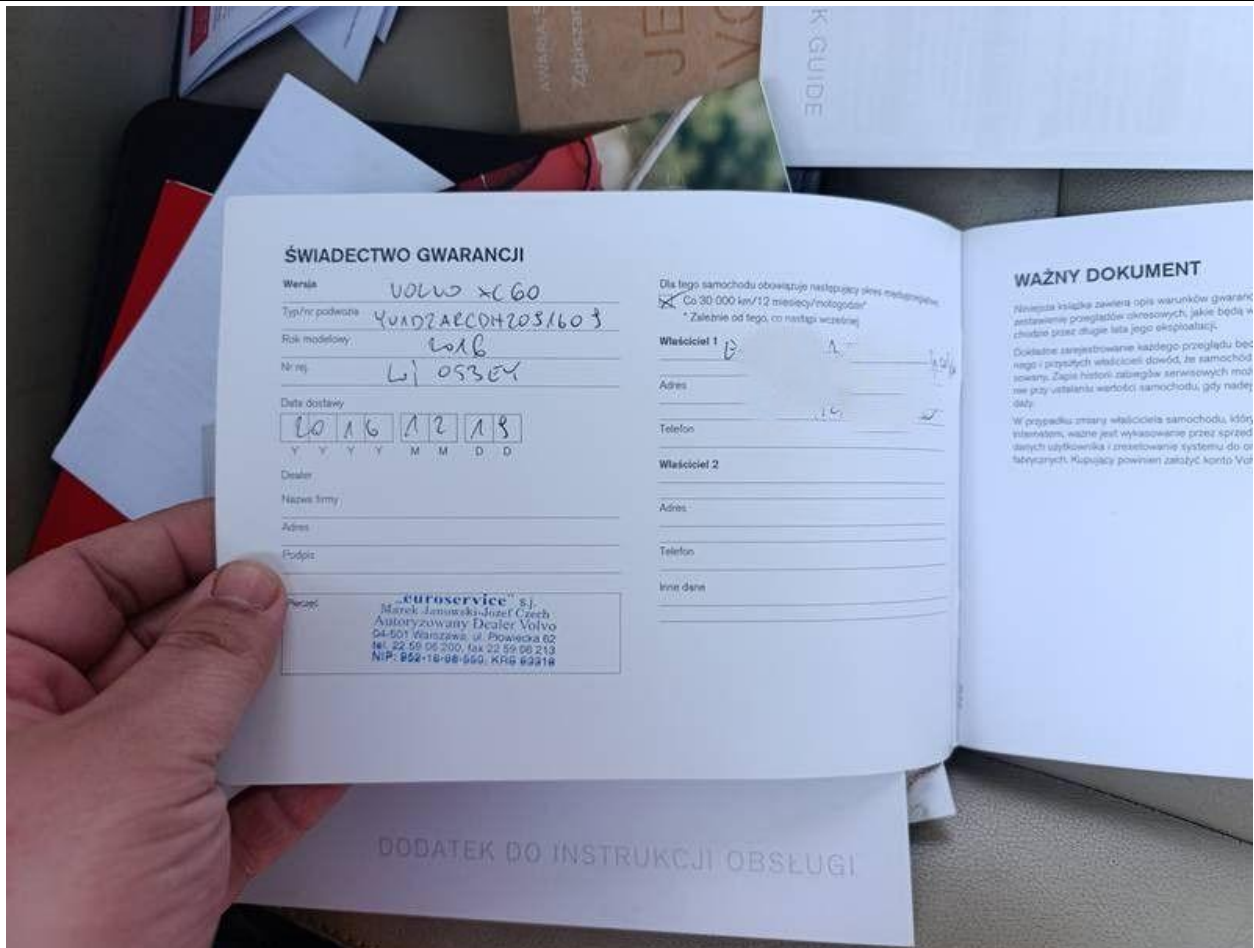 AWARIA
Zgłaszan
JE
VO
K GUIDE
ŚWIADECTWO GWARANCJI
Wersja VOLVO XC60
Typ/nr podwozia
Rok modelowy 2016
Nr rej.
Data dostawy
2016 12 19
Y Y Y Y M M D D
Dealer
Nazwa firmy
Adres
Podpis
Pieczęć
„euroservice" s.j.
Marek Janowski-Józef Czech
Autoryzowany Dealer Volvo
04-501 Warszawa, ul. Płowiecka 62
tel. 22 59 06 200, fax 22 59 06 213
Dla tego samochodu obowiązuje następujący okres międzyprzeglądowy:
Co 30 000 km/12 miesięcy/motogodzin*
* Zależnie od tego, co nastąpi wcześniej
Właściciel 1
Adres
Telefon
Właściciel 2
Adres
Telefon
Inne dane
WAŻNY DOKUMENT
Niniejsza książka zawiera opis warunków gwaranc
zestawienie przeglądów okresowych, jakie będą w
chodzie przez długie lata jego eksploatacji.
Dokładne zarejestrowanie każdego przeglądu będ
nego i przyszłych właścicieli dowód, że samochód
sowany. Zapis historii zabiegów serwisowych moż
nie przy ustalaniu wartości samochodu, gdy nadej
daży.
W przypadku zmiany właściciela samochodu, któr
internetem, ważne jest wykasowanie przez sprzed
danych użytkownika i zresetowanie systemu do
fabrycznych. Kupujący powinien założyć konto Vol
DODATEK DO INSTRUKCJI OBSŁUGI